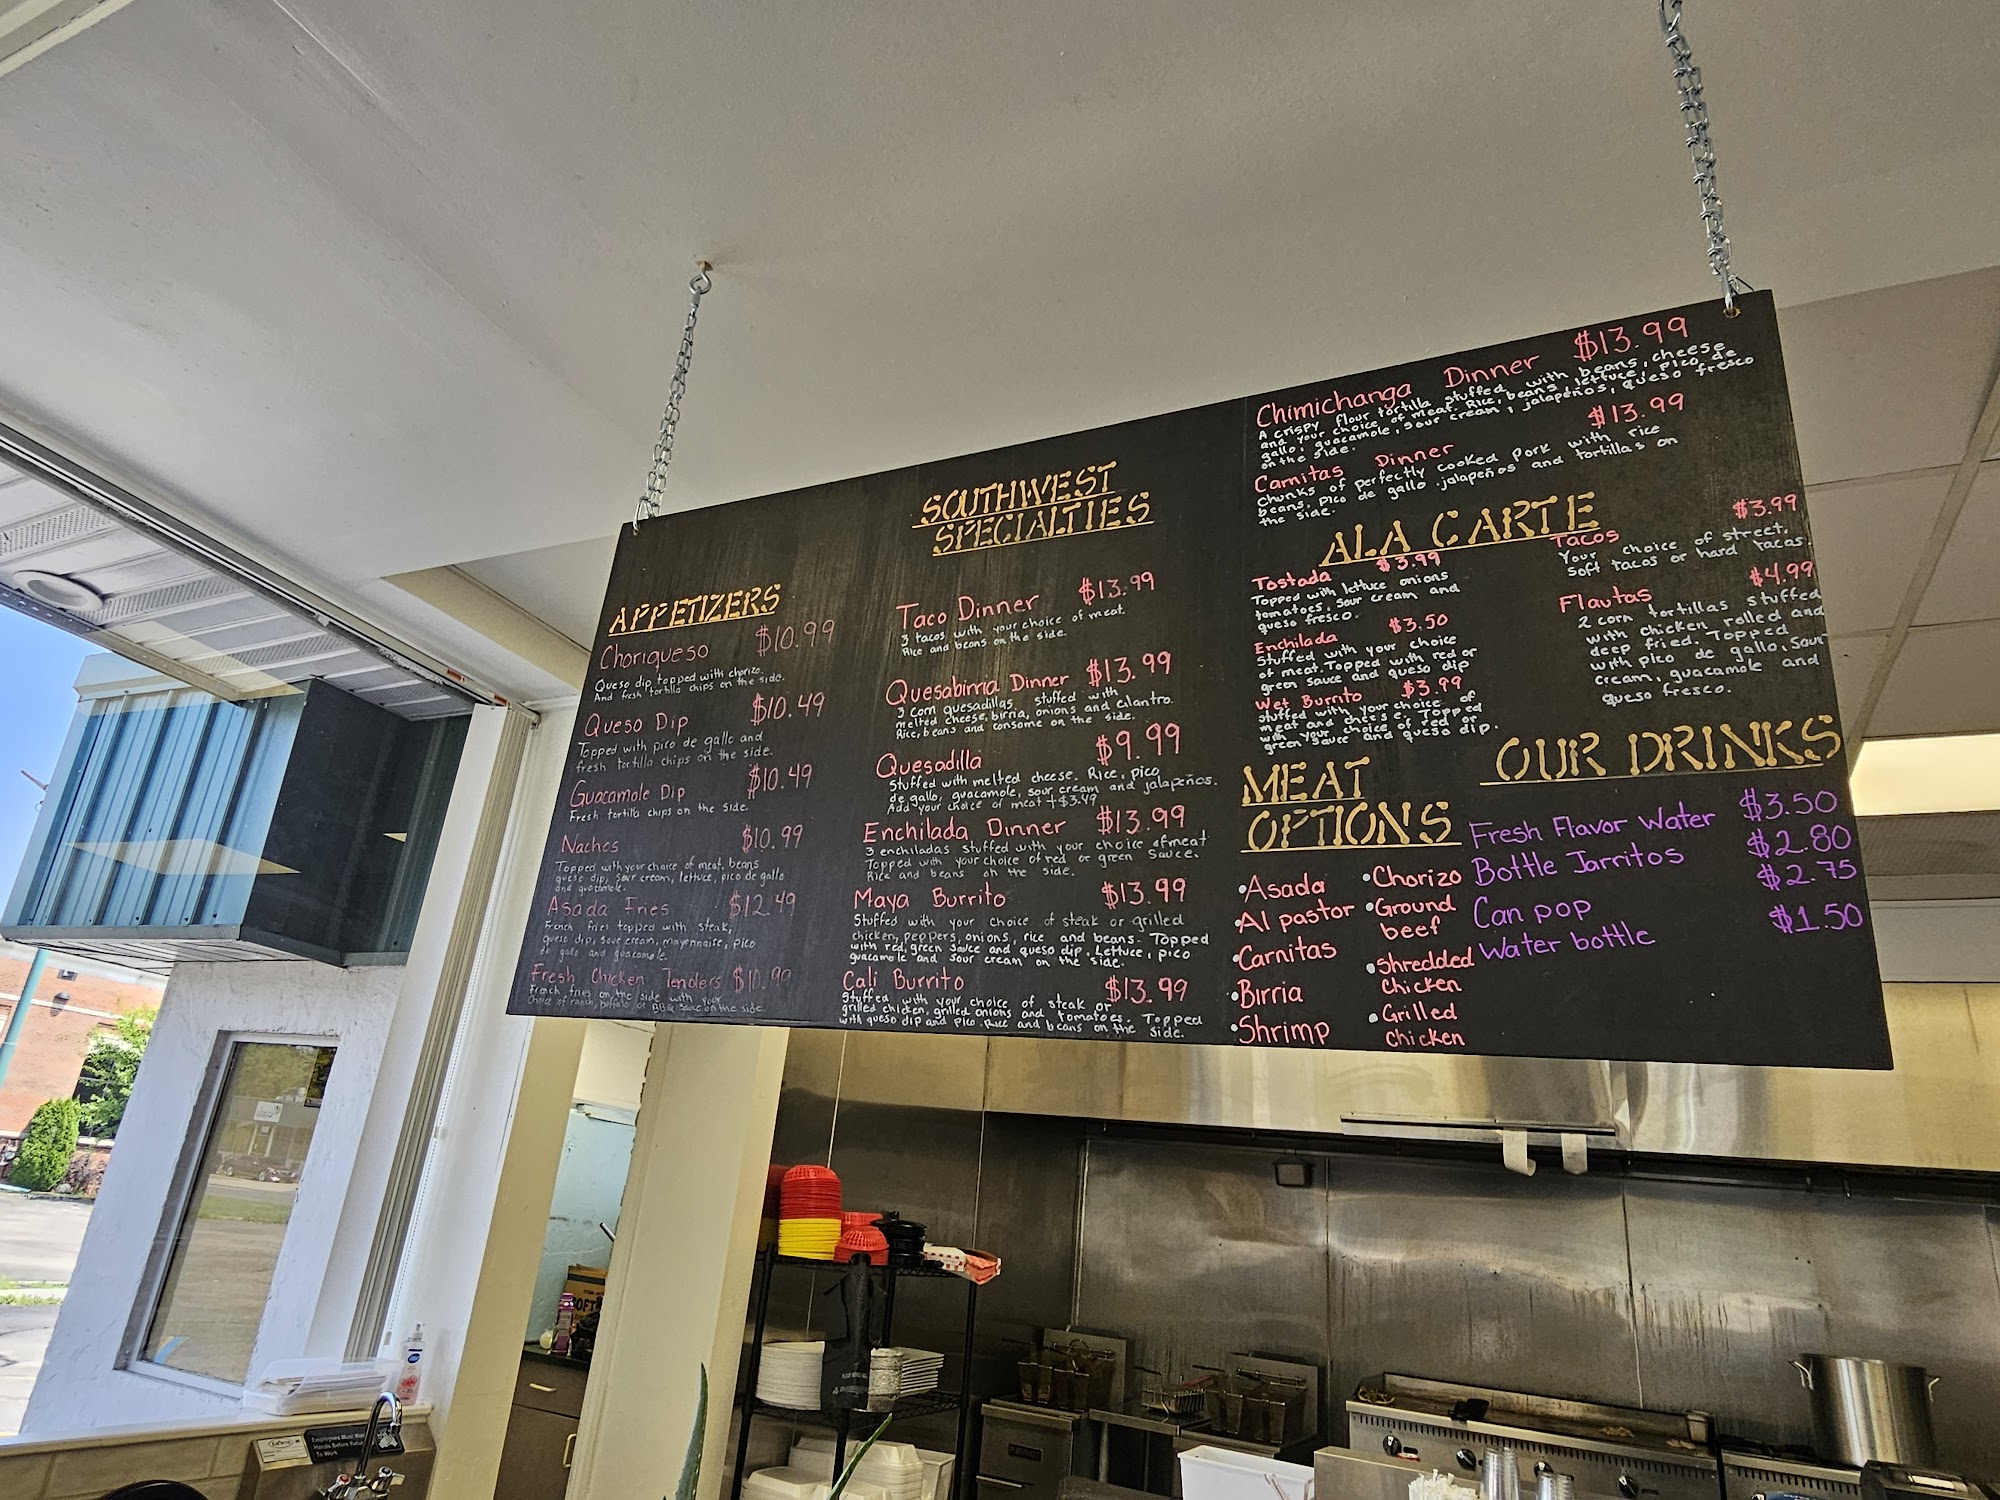 APPETIZERS
Choriqueso $10.99
Queso dip topped with chorizo.
And fresh tortilla chips on the side.
Queso Dip $10.49
Topped with pico de gallo and
fresh tortilla chips on the side.
Guacamole Dip $10.49
Fresh tortilla chips on the side.
Nachos $10.99
Topped with your choice of meat, beans
queso dip, sour cream, lettuce, pico de gallo
and guacamole.
Asada Fries $12.49
French fries topped with steak,
queso dip, sour cream, mayonnaise, pico
de gallo and guacamole.
Fresh Chicken Tenders $10.99
French fries on the side with your
choice of ranch, buffalo or BBQ sauce on the side.
SOUTHWEST
SPECIALTIES
Taco Dinner $13.99
3 tacos with your choice of meat.
Rice and beans on the side.
Quesabirria Dinner $13.99
3 corn quesadillas stuffed with
melted cheese, birria, onions and cilantro.
Rice, beans and consome on the side.
Quesadilla $9.99
Stuffed with melted cheese. Rice, pico
de gallo, guacamole, sour cream and jalapeños.
Add your choice of meat +$3.49
Enchilada Dinner $13.99
3 enchiladas stuffed with your choice of meat
Topped with your choice of red or green sauce.
Rice and beans on the side.
Maya Burrito $13.99
Stuffed with your choice of steak or grilled
chicken, peppers, onions, rice and beans. Topped
with red, green sauce and queso dip. Lettuce, pico
guacamole and sour cream on the side.
Cali Burrito $13.99
Stuffed with your choice of steak or
grilled chicken, grilled onions and tomatoes. Topped
with queso dip and pico. Rice and beans on the side.
Chimichanga Dinner $13.99
A crispy flour tortilla stuffed with beans, cheese
and your choice of meat. Rice, beans, lettuce, pico de
gallo, guacamole, sour cream, jalapeños, queso fresco
on the side.
Carnitas Dinner $13.99
Chunks of perfectly cooked pork with rice
beans, pico de gallo jalapeños and tortillas on
the side.
ALA CARTE
Tostada $3.99
Topped with lettuce onions
tomatoes, sour cream and
queso fresco.
Enchilada $3.50
Stuffed with your choice
of meat. Topped with red or
green sauce and queso dip
Wet Burrito $3.99
stuffed with your choice of
meat and cheese. Topped
with your choice of red or
green sauce and queso dip.
Tacos $3.99
Your choice of street,
soft tacos or hard tacos.
Flautas $4.99
2 corn tortillas stuffed
with chicken rolled and
deep fried. Topped
with pico de gallo, sour
cream, guacamole and
queso fresco.
MEAT
OPTIONS
•Asada
•Al pastor
•Carnitas
•Birria
•Shrimp
•Chorizo
•Ground
beef
•Shredded
chicken
•Grilled
chicken
OUR DRINKS
Fresh Flavor Water $3.50
Bottle Jarritos $2.80
Can pop $2.75
Water bottle $1.50
Employees Must Wash
Hands Before Returning
To Work